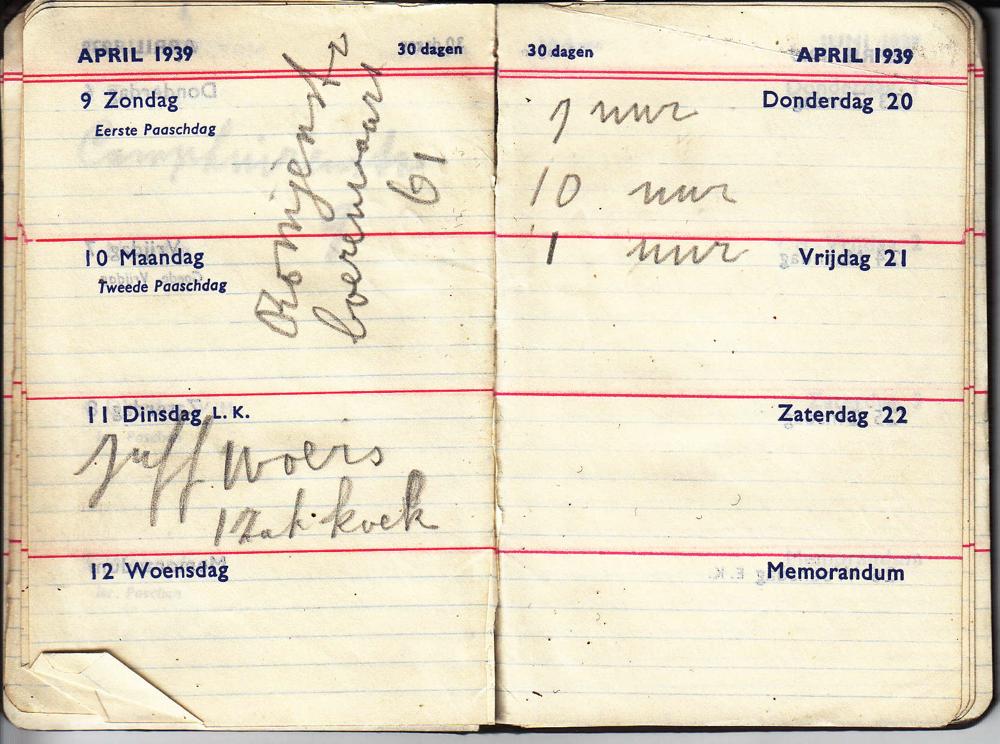 APRIL 1939
30 dagen
9 Zondag
Eerste Paaschdag
10 Maandag
Tweede Paaschdag
boerenvaart
61
11 Dinsdag L. K.
Juff Woers
1 Zak koek
12 Woensdag
30 dagen
APRIL 1939
Donderdag 20
uur
10 uur
Vrijdag 21
1 uur
Zaterdag 22
Memorandum